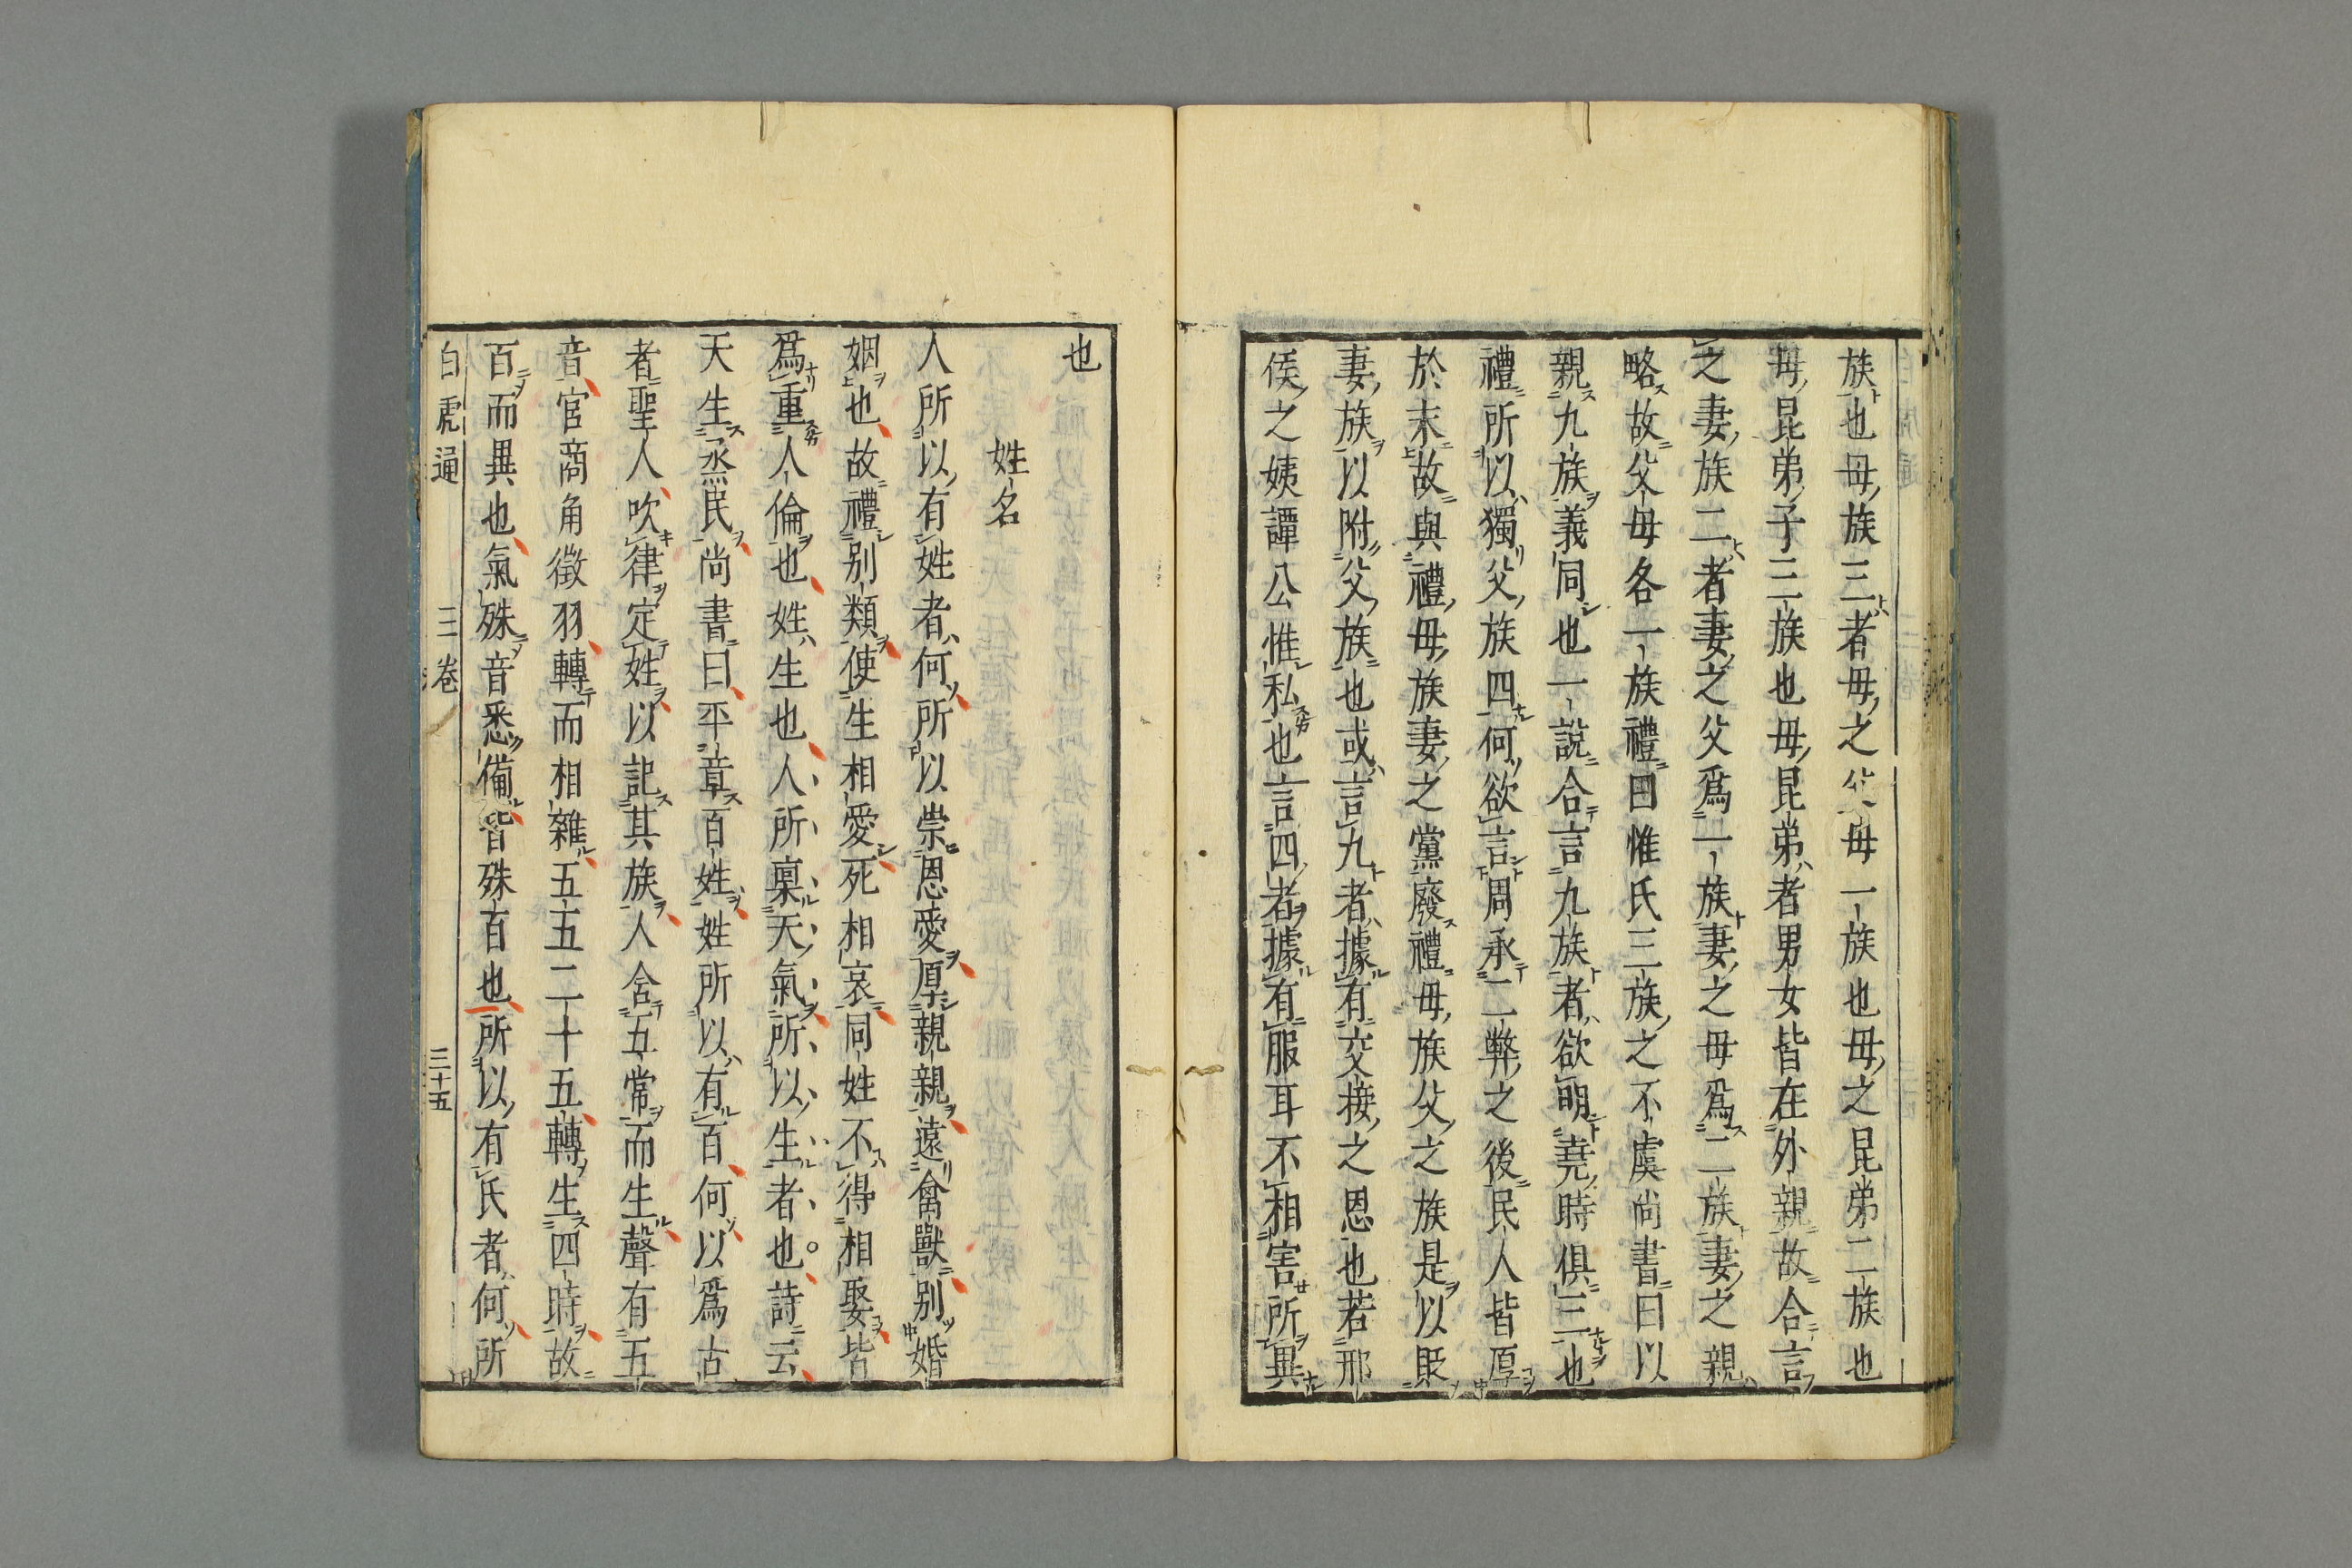 族也母族三者母之父母一族也母之昆弟二族也
母昆弟子三族也母昆弟者男女皆在外親故合言
之妻族二者妻之父爲一族妻之母爲二族妻之親
略故父母各一族禮曰惟氏三族之不虞尚書曰以
親九族義同也一說合言九族者欲明堯時俱三也
禮所以獨父族四何欲言周承二弊之後民人皆厚
於末故與禮母族妻之黨廢禮母族父之族是以貶
妻族以附父族也或言九者據有交接之恩也若邢
侯之姨譚公惟私也言四者據有服耳不相害所異
也
姓名
人所以有姓者何所以崇恩愛厚親親遠禽獸别婚
姻也故禮别類使生相愛死相哀同姓不得相娶皆
爲重人倫也姓生也人所稟天氣所以生者也詩云
天生烝民尚書曰平章百姓姓所以有百何以爲古
者聖人吹律定姓以記其族人含五常而生聲有五
音宮商角徵羽轉而相雜五五二十五轉生四時故
百而異也氣殊音悉備皆殊百也所以有氏者何所
白虎通 三卷 三十五